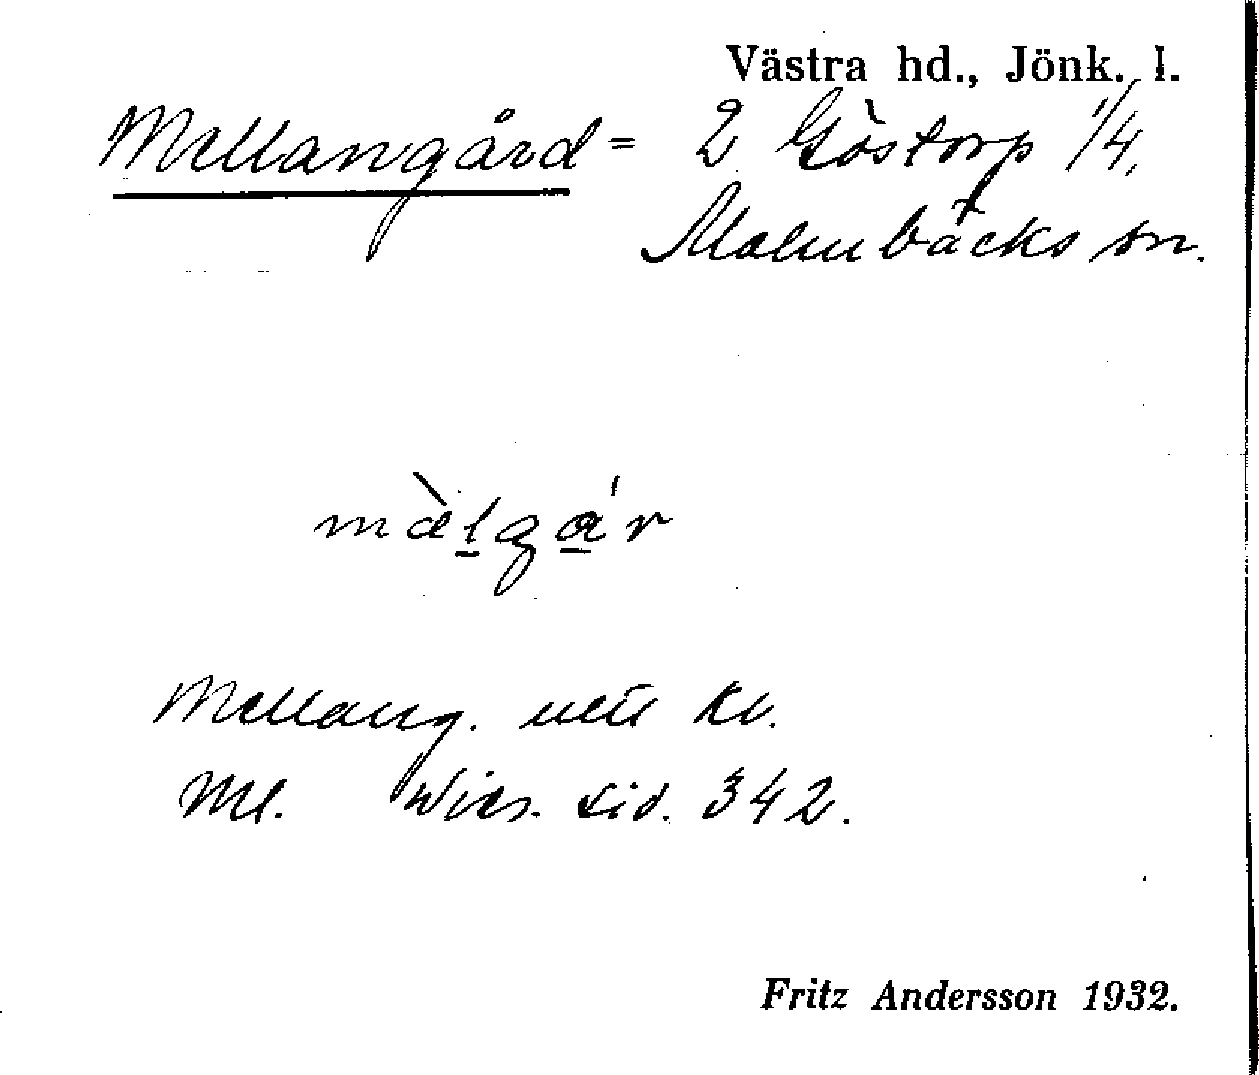 Västra hd., Jönk. l.
Mellangård = 2 Göstorp 1/4,
Malmbäcks sn.
mæ̀lga'r
Mellang. utu Kl.
Ml. Wies. sid. 342.
Fritz Andersson 1932.